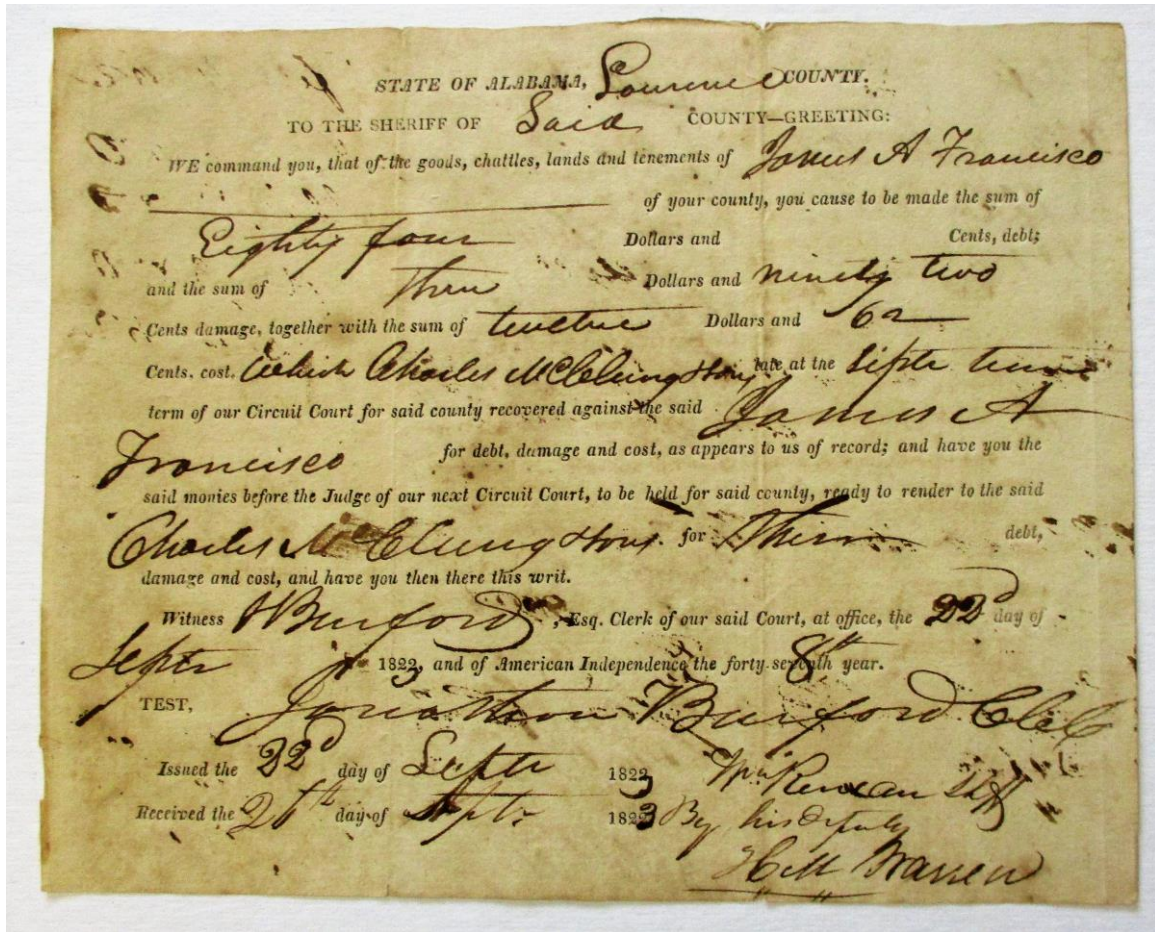 STATE OF ALABAMA, Lawrence COUNTY.
TO THE SHERIFF OF Said COUNTY—GREETING:
WE command you, that of the goods, chattles, lands and tenements of James A Francisco
of your county, you cause to be made the sum of
Eighty four Dollars and Cents, debt;
and the sum of Three Dollars and ninety two
Cents damage, together with the sum of twelve Dollars and 62
Cents. cost. Which Charles McClung & Sons late at the Septr term
term of our Circuit Court for said county recovered against the said James A
Francisco for debt, damage and cost, as appears to us of record; and have you the
said monies before the Judge of our next Circuit Court, to be held for said county, ready to render to the said
Charles McClung & Sons. for Their debt,
damage and cost, and have you then there this writ.
Witness J Burford, Esq. Clerk of our said Court, at office, the 22d day of
Septr 1823, and of American Independence the forty-8th year.
TEST, Jonathan Burford Clk
Issued the 22d day of Septr 1823 Wm Shff
Received the 26th day of Septr 1823 By his deputy
Hill Warren